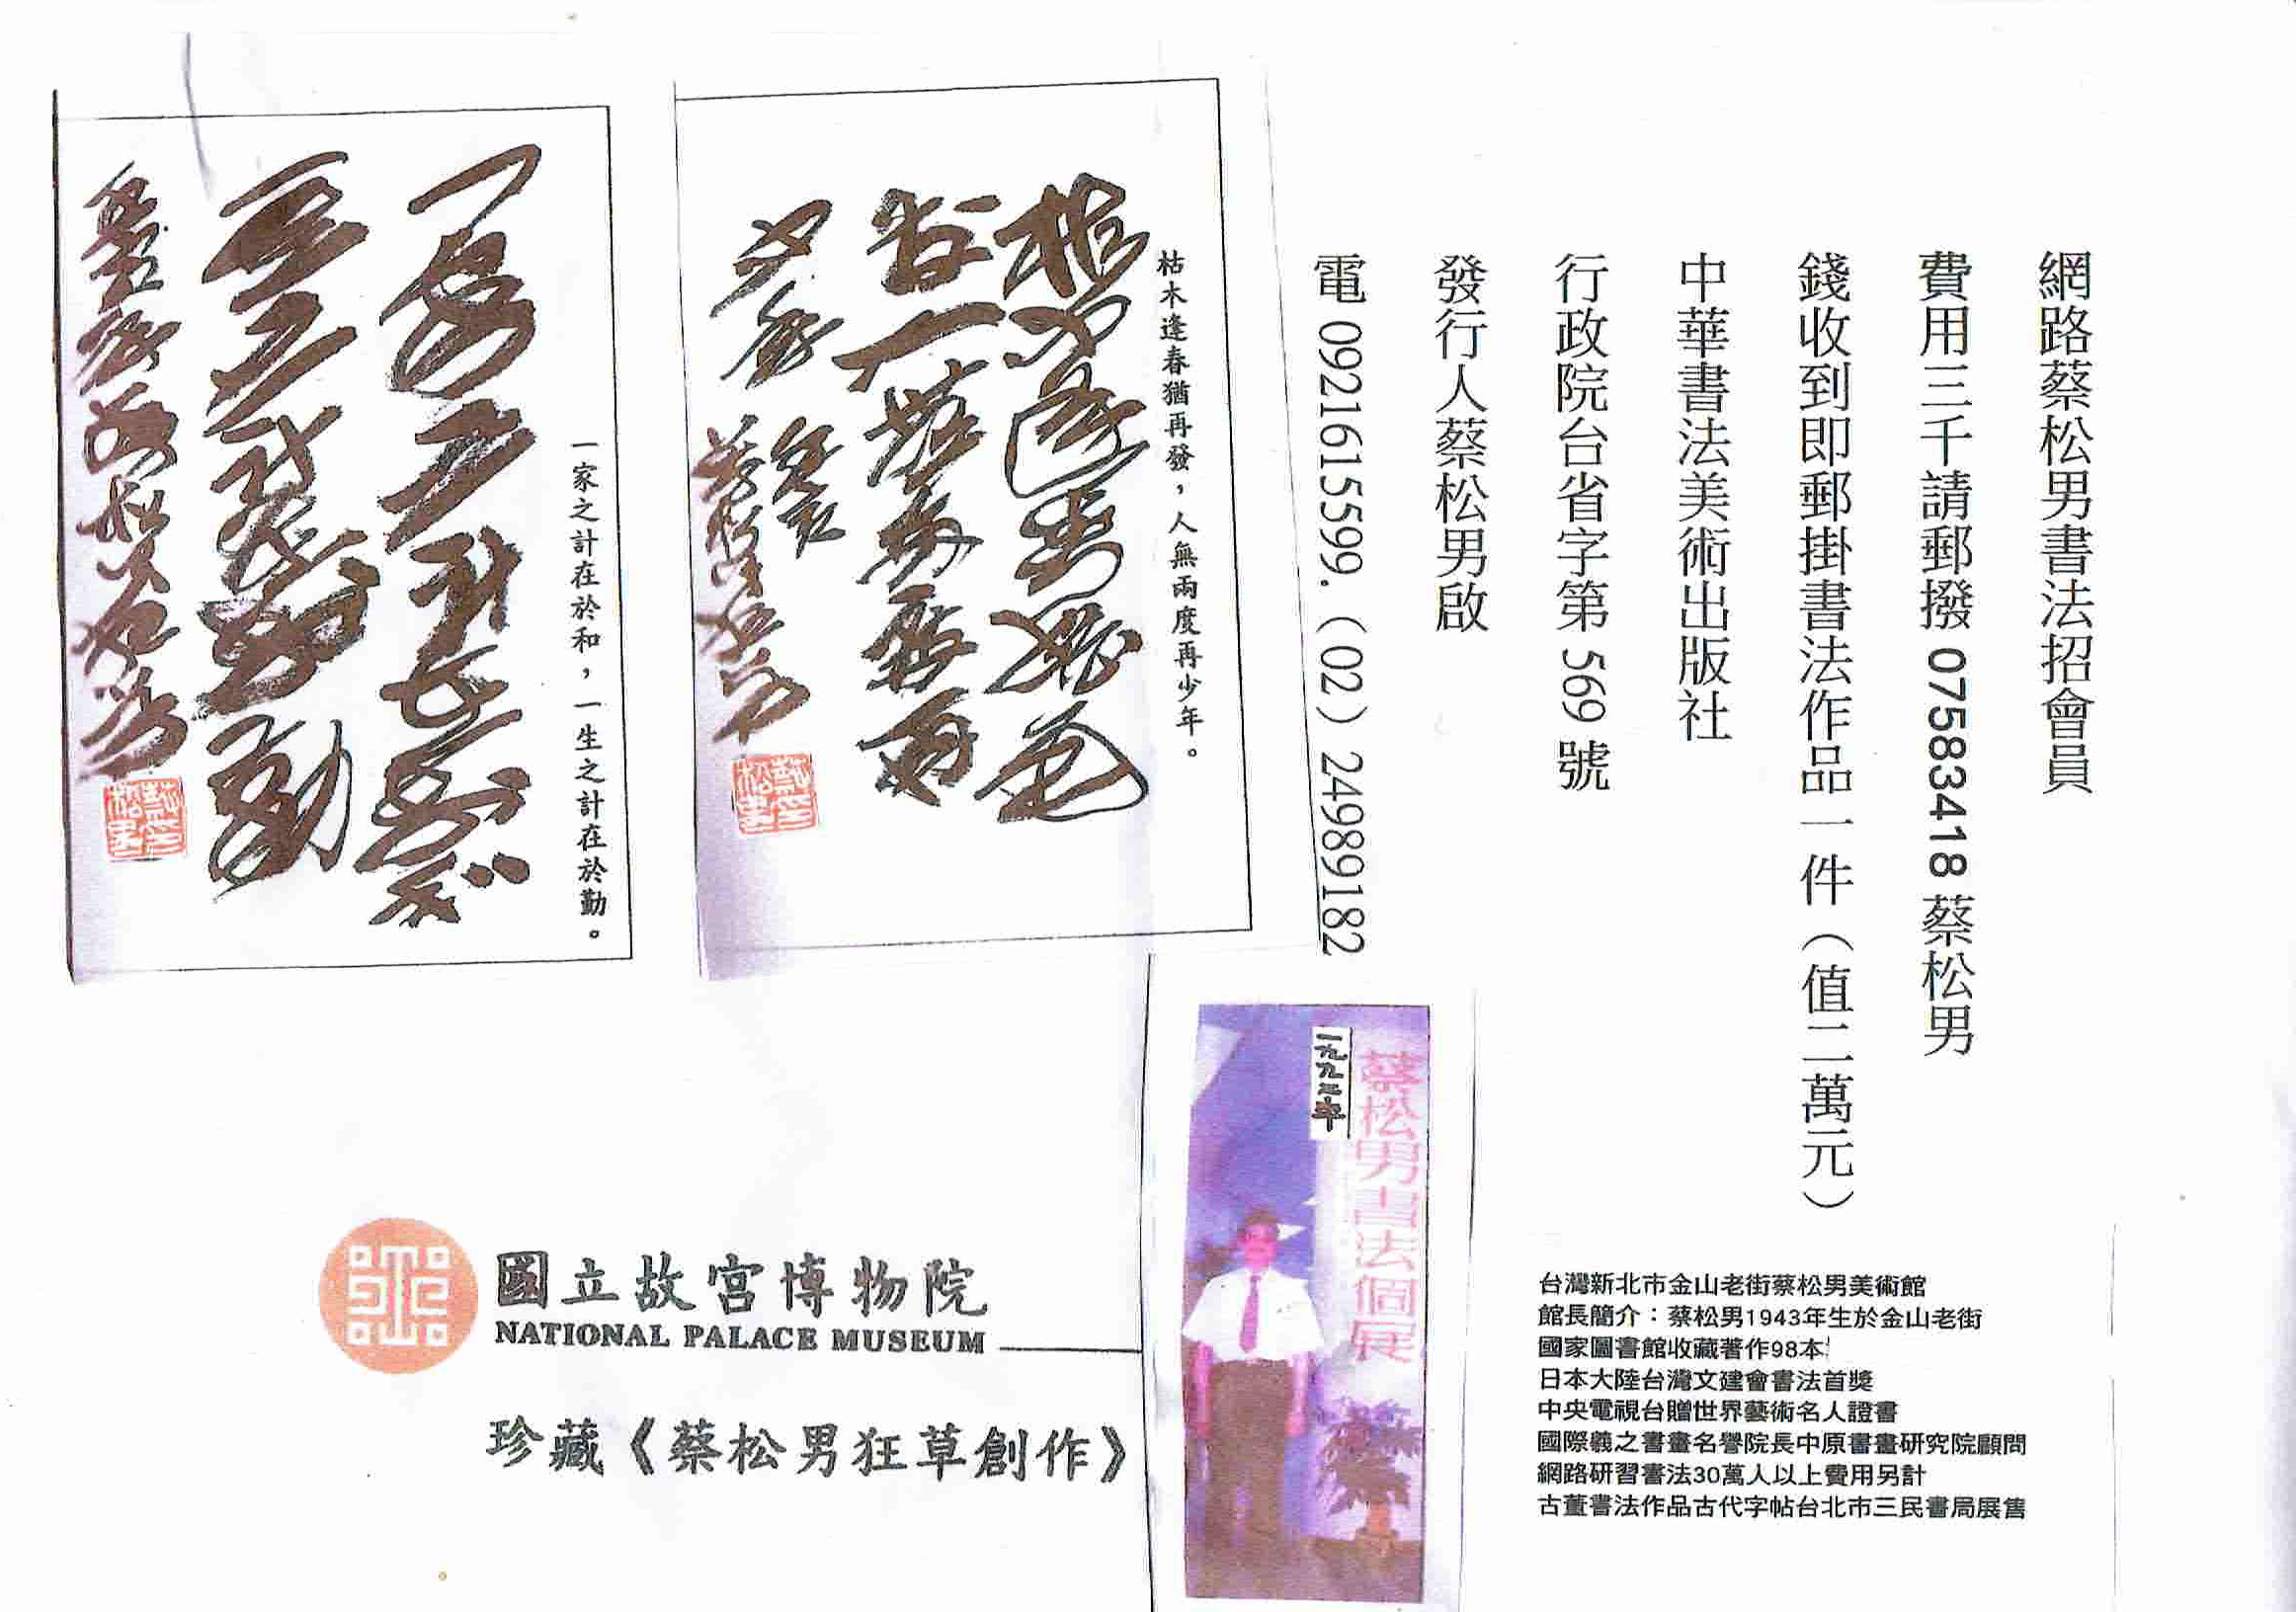 網路蔡松男書法招會員
費用三千請郵撥 07583418 蔡松男
錢收到即郵掛書法作品一件（值二萬元）
中華書法美術出版社
行政院台省字第 569 號
發行人蔡松男啟
電 0921615599.（02）24989182
枯木逢春猶再發，人無兩度再少年。
一家之計在於和，一生之計在於勤。
蔡松男書法個展
一九九二年
國立故宮博物院
NATIONAL PALACE MUSEUM
珍藏《蔡松男狂草創作》
台灣新北市金山老街蔡松男美術館
館長簡介：蔡松男1943年生於金山老街
國家圖書館收藏著作98本
日本大陸台灣文建會書法首獎
中央電視台贈世界藝術名人證書
國際羲之書畫名譽院長中原書畫研究院顧問
網路研習書法30萬人以上費用另計
古董書法作品古代字帖台北市三民書局展售